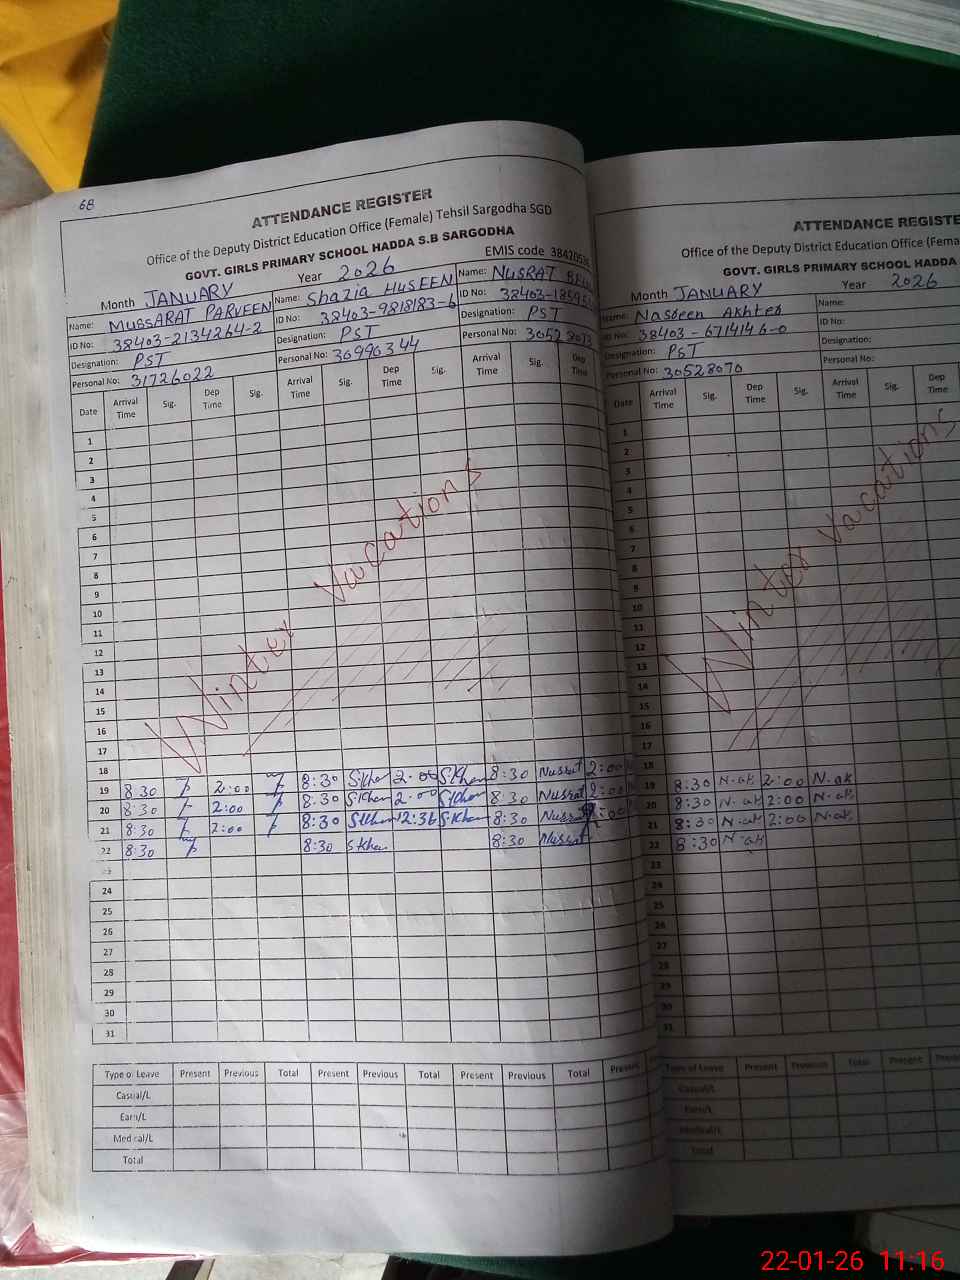 68
ATTENDANCE REGISTER
Office of the Deputy District Education Office (Female) Tehsil Sargodha SGD
GOVT. GIRLS PRIMARY SCHOOL HADDA S.B SARGODHA
EMIS code
Month JANUARY Year 2026
Name: MUSSARAT PARVEEN Name: Shazia HUSEEN Name: NUSRAT
ID No: 38403-2134264-2 ID No: 38403-9818183-6 ID No:
Designation: PST Designation: PST Designation: PST
Personal No: 31726022 Personal No: 30996344 Personal No:
Date Arrival Time Sig. Dep Time Sig. Arrival Time Sig. Dep Time Sig. Arrival Time Sig. Dep Time
1
2
3
4
5
6
7
8
9
10
11
12
13
14
15
16
17
Winter Vacations
18
19 8:30 2:00 8:30 SKhan 2:00 SKhan 8:30 Nusrat 2:00
20 8:30 2:00 8:30 SKhan 2:00 SKhan 8:30 Nusrat 2:00
21 8:30 2:00 8:30 SKhan 12:36 SKhan 8:30 Nusrat
22 8:30 8:30 SKhan 8:30 Nusrat
24
25
26
27
28
29
30
31
Type of Leave Present Previous Total Present Previous Total Present Previous Total Present
Casual/L
Earn/L
Medical/L
Total
ATTENDANCE
Office of the Deputy District Education Office
GOVT. GIRLS PRIMARY SCHOOL HADDA
Month JANUARY Year 2026
Name: Nasreen Akhter Name:
ID No: 38403-6714146-0 ID No:
Designation: PST Designation:
Personal No: 30528070 Personal No:
Date Arrival Time Sig. Dep Time Sig. Arrival Time Sig. Dep Time
1
2
3
4
5
6
7
8
9
10
11
12
13
14
15
16
17
Winter Vacations
18
19 8:30 N.ak 2:00 N.ak
20 8:30 N.ak 2:00 N.ak
21 8:30 N.ak 2:00 N.ak
22 8:30 N.ak
23
24
25
26
27
28
29
30
31
Type of Leave Present Previous Total Present
Casual/L
Earn/L
Medical/L
Total
22-01-26 11:16